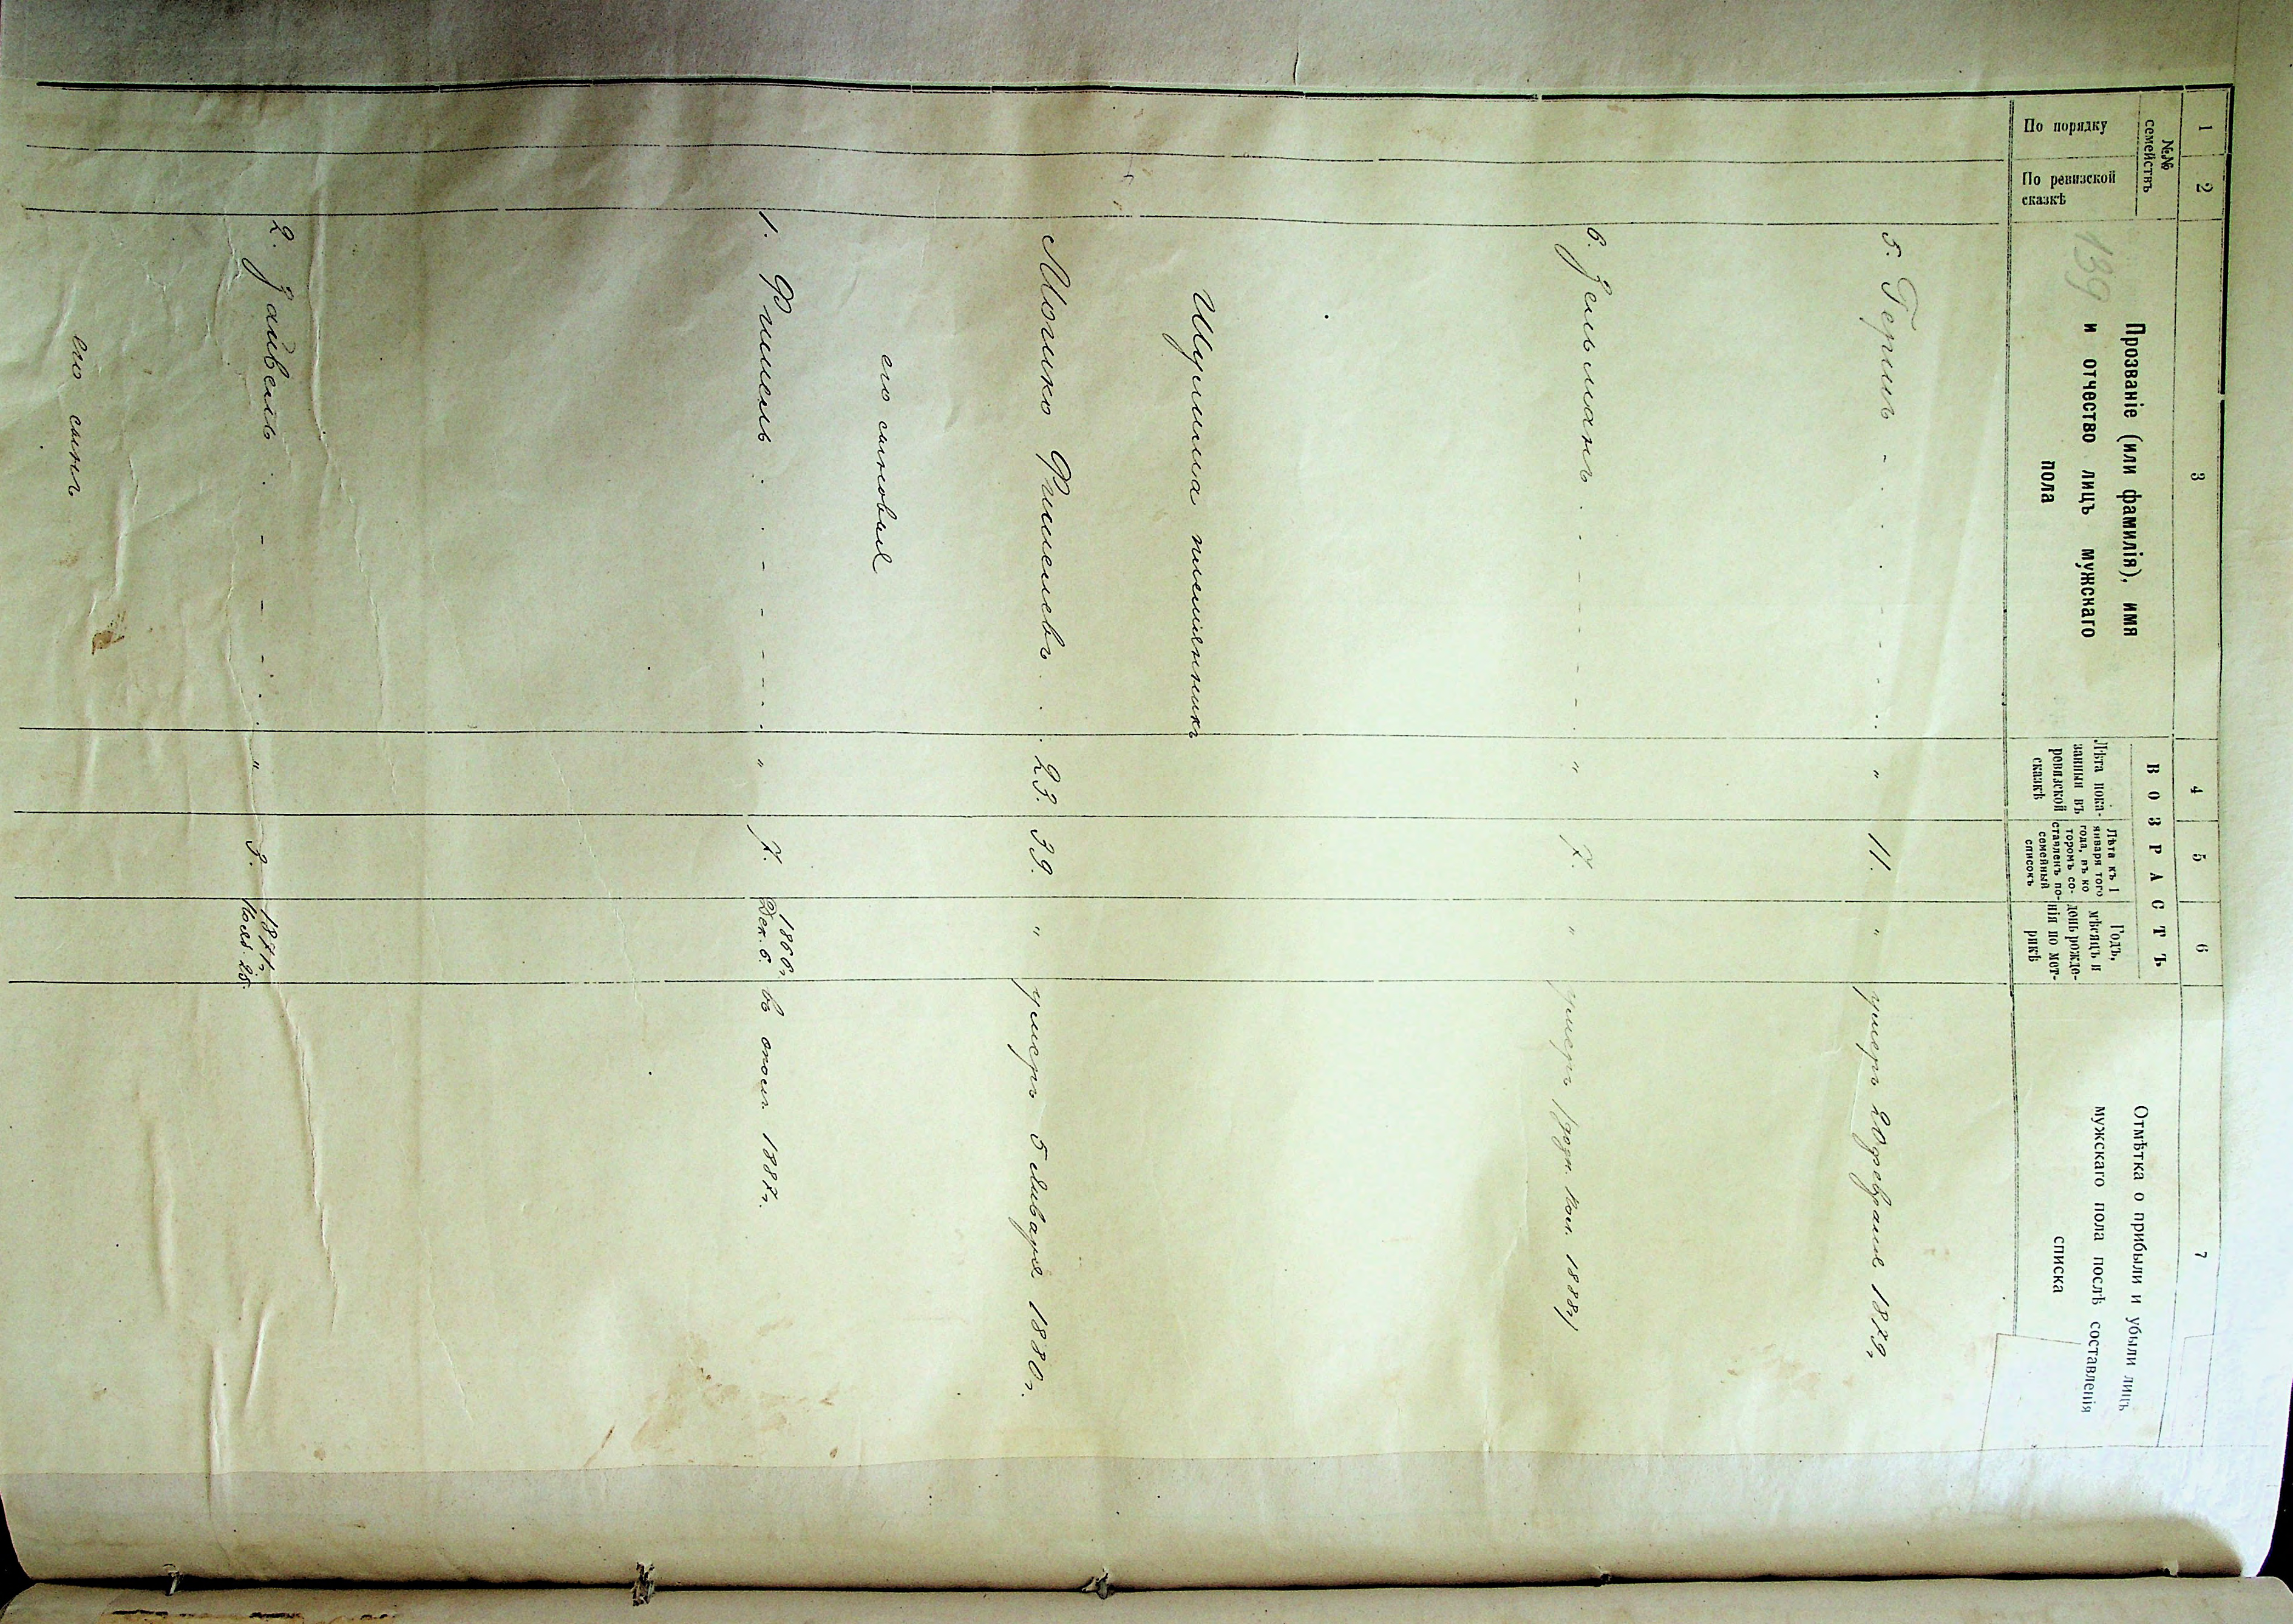 1 2 3 4 5 6 7
№№ семействъ
По порядку
По ревизской сказкѣ
Прозваніе (или фамилія), имя
и отчество лицъ мужскаго
пола
139
ВОЗРАСТЪ
Лѣта пока-
занныя въ
ревизской
сказкѣ
Лѣта къ 1
января того
года, въ ко
торомъ со-
ставленъ по-
семейный
списокъ
Годъ,
мѣсяцъ и
день рожде-
нія по мет-
рикѣ
Отмѣтка о прибыли и убыли лицъ
мужскаго пола послѣ составленія
списка
5. Гершъ " 11. " умеръ 20 февраля 1879г.
6. Зельманъ " 7. " умеръ 1888г
племянникъ
Мошко Фишелевъ 23. 39. " умеръ 5 января 1880г.
его сыновья
1. Фишель " 7. 1866г. Дек. 6. 1887г.
2. Зайвель " 3. 1871г. Нояб. 25.
его сынъ